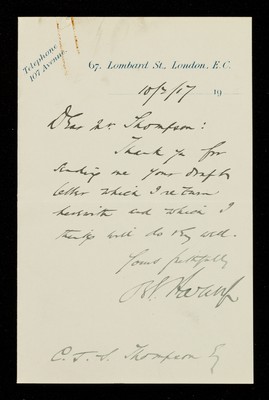 Telephone
107 Avenue.
67, Lombard St., London, E.C.
10/3/17 19
Dear Mr. Thompson:
Thank you for
sending me your draft
letter which I return
herewith and which I
think will do very well.
Yours faithfully
C. J. S. Thompson Esq